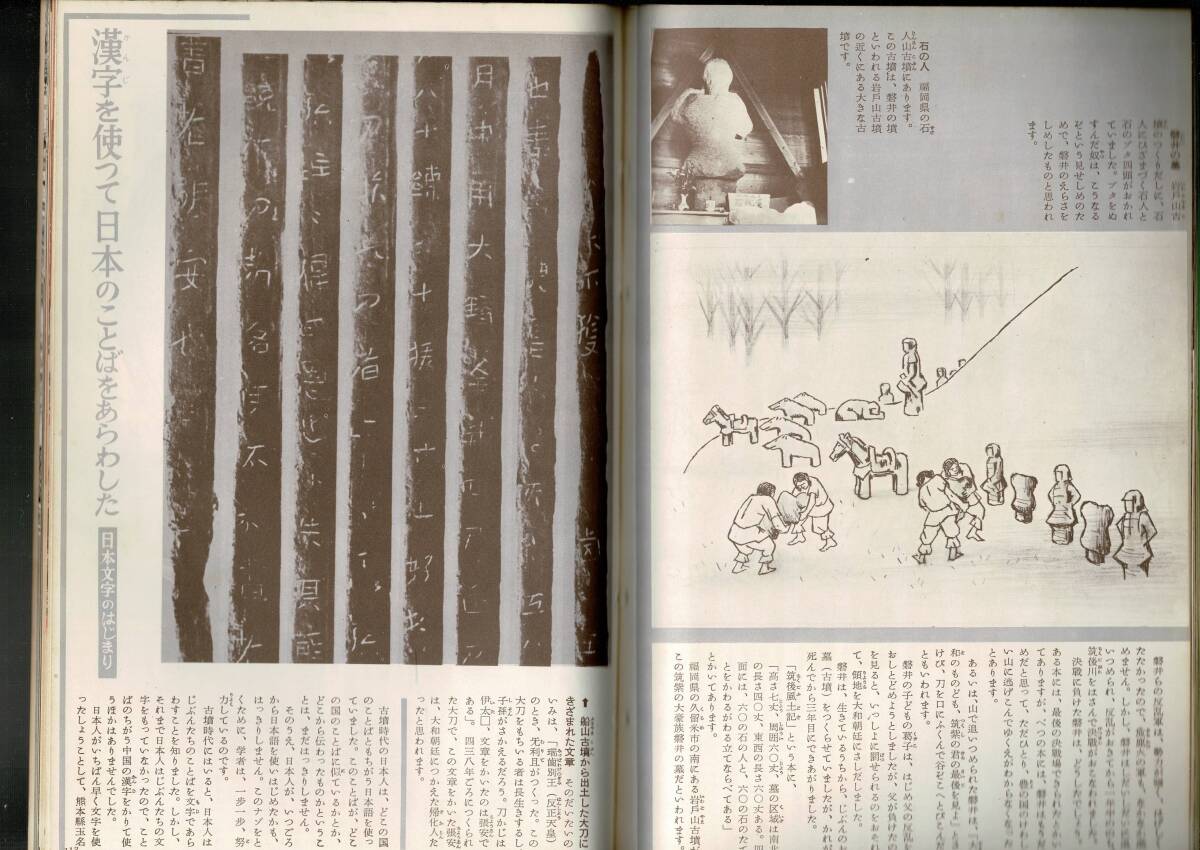 石の人　福岡県の石
人山古墳にあります。
この古墳は、磐井の墳
といわれる岩戸山古墳
の近くにある大きな古
墳です。
磐井の墓　岩戸山古
墳のつくりだしに、石
人にひざまづく石人と
石のブタ四頭がおかれ
ていました。ブタをぬ
すんだ奴は、こうなる
ぞという見せしめのた
めで、磐井のえらさを
しめしたものと思われ
ます。
磐井らの反乱軍は、勢力が
たたかったので、
めません。しかし、磐井は
いつめられ、反乱がおきてから一年半
筑後川をはさんだ決戦がおこなわれました。
決戦に負けた磐井は、どうなったで
ある本には、最後の決戦場できられた
てありますが、べつの本には、磐井はもう
めだと思って、ただひとり、豊の国のけわし
い山に逃げこんでゆくえがわからなくなった
とあります。
あるいは山で追いつめられた磐井は、「大
和のものども、筑紫の君の最後を見よ」と
けび、刀を口にふくんで谷ぞこへとびこ
ともいわれます。
磐井の子どもの葛子は、はじめ父の反乱
おしとどめようとしましたが、父が負けたの
を見ると、いっしょに罰せられるのをおそれ
て、領地を大和朝廷にさしだしました。
磐井は、生きているうちから、じぶんのお
墓（古墳）をつくらせていましたが、かれが
死んでから三年目にできあがりました。
「筑後風土記」という本に、
「高さ七丈、周囲六〇丈、墓の区域は南北
の長さ四〇丈、東西の長さ六〇丈ある。四
面には、六〇の石の人と、六〇の石のたて
とをかわるがわる立てならべてある」
とかいてあります。
福岡県の久留米市の南にある岩戸山古墳が
この筑紫の大豪族磐井の墓だといわれます。
漢字を使って日本のことばをあらわした
日本文字のはじまり
↑船山古墳から出土した大刀に
きざまれた文章　そのだいたいの
いみは、「瑞歯別王（反正天皇）
のとき、先利且がつくった。この
大刀をもちいる者は長生きするし
子孫がさかえるだろう。刀かじは
伊太□、文章をかいたのは張安で
ある」。四三八年ごろにつくられ
た大刀で、この文章をかいた張安
は、大和朝廷につかえた帰化人だ
ったと思われます。
古墳時代の日本人は、どこの国
のことばともちがう日本語を使っ
ていました。このことばが、どこ
の国のことばに似ているかとか、
どこから伝わったものかというこ
とは、まだはっきりしません。
そのうえ、日本人が、いつごろ
から日本語を使いはじめたかも、
はっきりしません。このナゾをと
くために、学者は、一歩一歩、努
力しているのです。
古墳時代にはいると、日本人は
じぶんたちのことばを文字であら
わすことを知りました。しかし、
それまで日本人はじぶんたちの文
字をもっていなかったので、こと
ばのちがう中国の漢字をかりて使
うほかはありませんでした。
日本人がいちばん早く文字を使
ったしょうことして、熊本県玉名